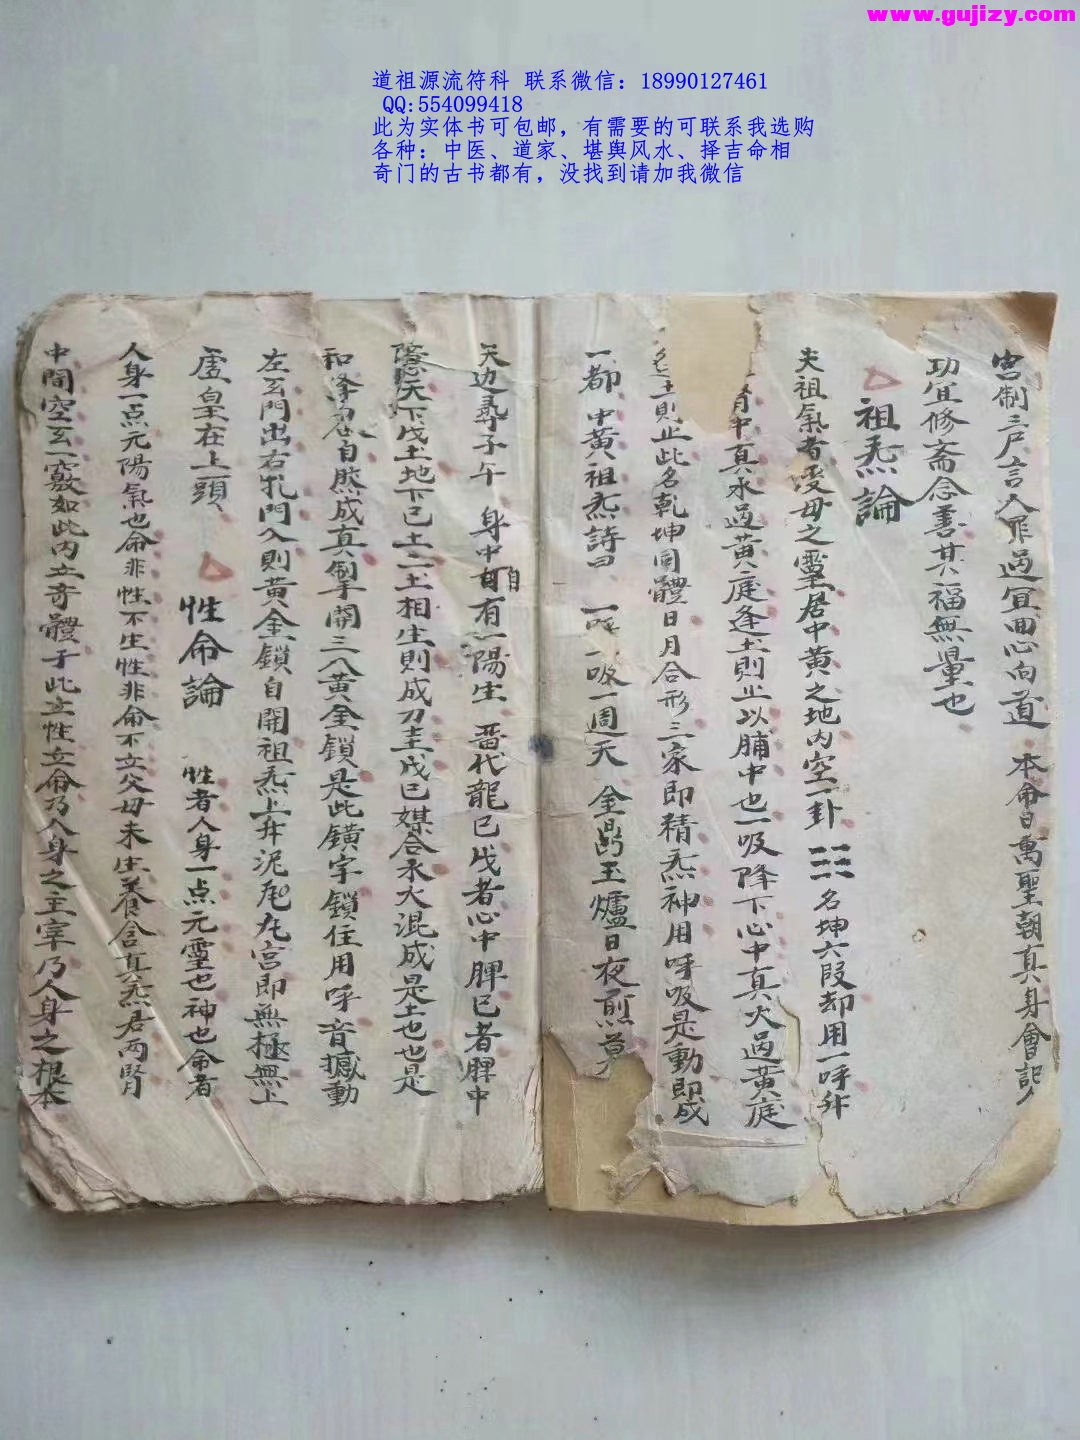 www.gujizy.com
道祖源流符科 联系微信：18990127461
QQ:554099418
此为实体书可包邮，有需要的可联系我选购
各种：中医、道家、堪舆风水、择吉命相
奇门的古书都有，没找到请加我微信
宮制三尸言人罪過宜回心向道 本命日萬聖朝真身會記人
功宜修斋念善其福無量也
祖炁論
夫祖氣者受母之靈居中黄之地内空一卦☷名坤六段却用一呼升
腎中真水過黄庭逢土則止以脯中也一吸降下心中真火過黄庭
逢土則止此名乾坤同體日月合形三家即精炁神用呼吸是動即成
一都 中黄祖炁詩曰 一呼一吸一周天 金鼎玉爐日夜煎 莫
天边尋子午 身中自有一陽生 晋代龍巳戊者心中脾巳者脾中
隱天下戊土地下已土二土相生則成刀圭戊已媒合水火混成是土也也是
和 自然成真掣開三八黄金鎖是此鐄字鎖住用呼音撼動
左玄門出右牝門入則黄金鎖自開祖炁上升泥尾丸宫即無極無上
虛皇在上頭 性命論 性者人身一点元靈也神也命者
人身一点元陽氣也命非性不生性非命不立父母未生養含真炁君两腎
中間空玄一竅如此内立奇體于此立性立命乃人身之主宰乃人身之根本